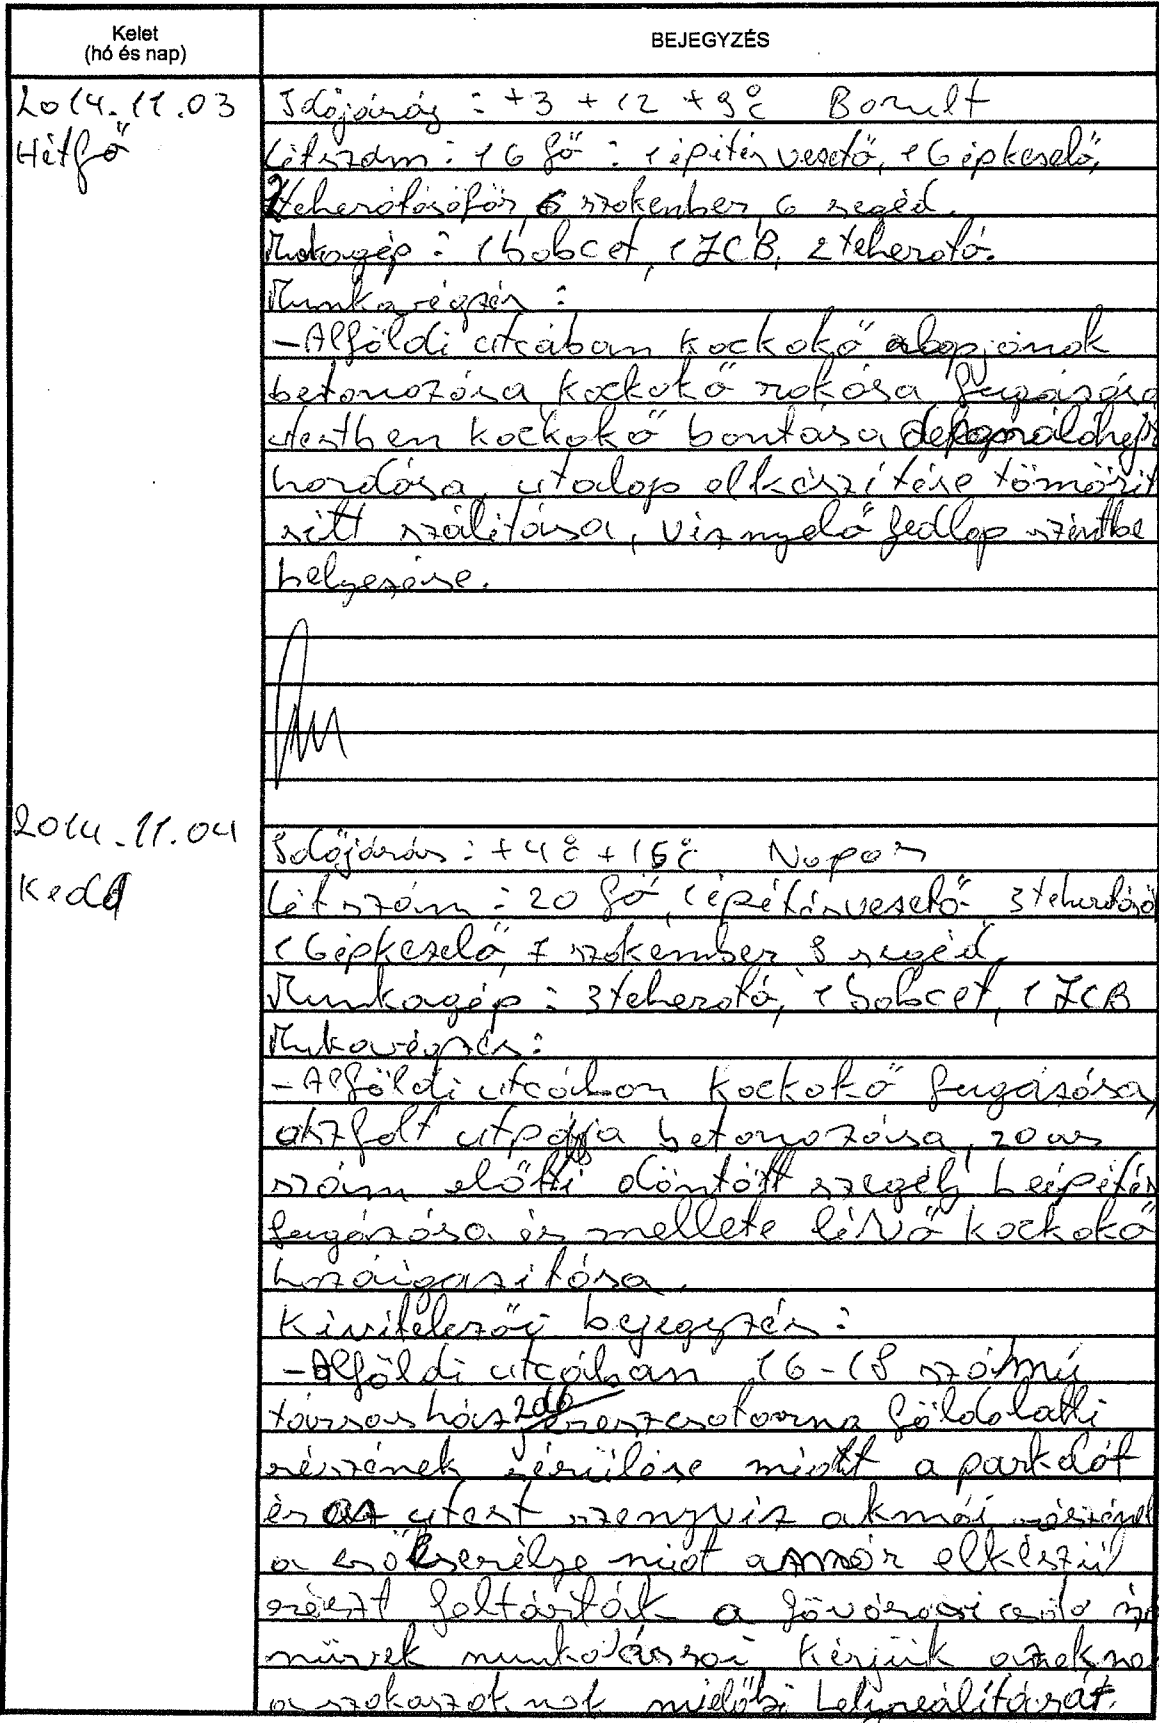 Kelet
(hó és nap)
BEJEGYZÉS
2014.11.03
Hétfő
Időjárás : +3 +12 +9°C Borult
Létszám : 16 fő : 1 építés vezető, 1 Gépkezelő,
2 teherótósófőr, 6 szokember, 6 segéd.
Mukagép : 1 bobcet, 1 JCB, 2 teherotó.
Munkavégzés :
- Alföldi utcában kockokő alapjának
betonozósa, kockokő rokósa fugázósa
utestben kockokő bontása
hordósa, utalap elkészítése tömörit
sitt szálitása, víznyelő fedlap szintbe
helyezése.
2014.11.04
Kedd
Időjárás : +4°C +15°C Napos
Létszám : 20 fő, 1 építésvezető 3 teherótósó
1 Gépkezelő, 7 szokember 8 segéd,
Munkagép : 3 teherotó, 1 bobcet, 1 JCB
Mukavégzés :
- Alföldi utcában kockokő fugázósa,
aszfolt betonozósa, 20 as
szám előtti döntött szegély beépítés
fugázósa és mellete lévő kockokő
hozáigazitósa.
Kivitelezői bejegyzés :
- Alföldi utcában 16-18 számú
társasház 2db ereszcsotorna földalatti
részének sérülése miatt a parkolót
és az utest szenyvíz aknái
a miot a már elkészül
részt feltárták a fővárosi
művek munkásai kérjük
a szokaszoknot mielőbi